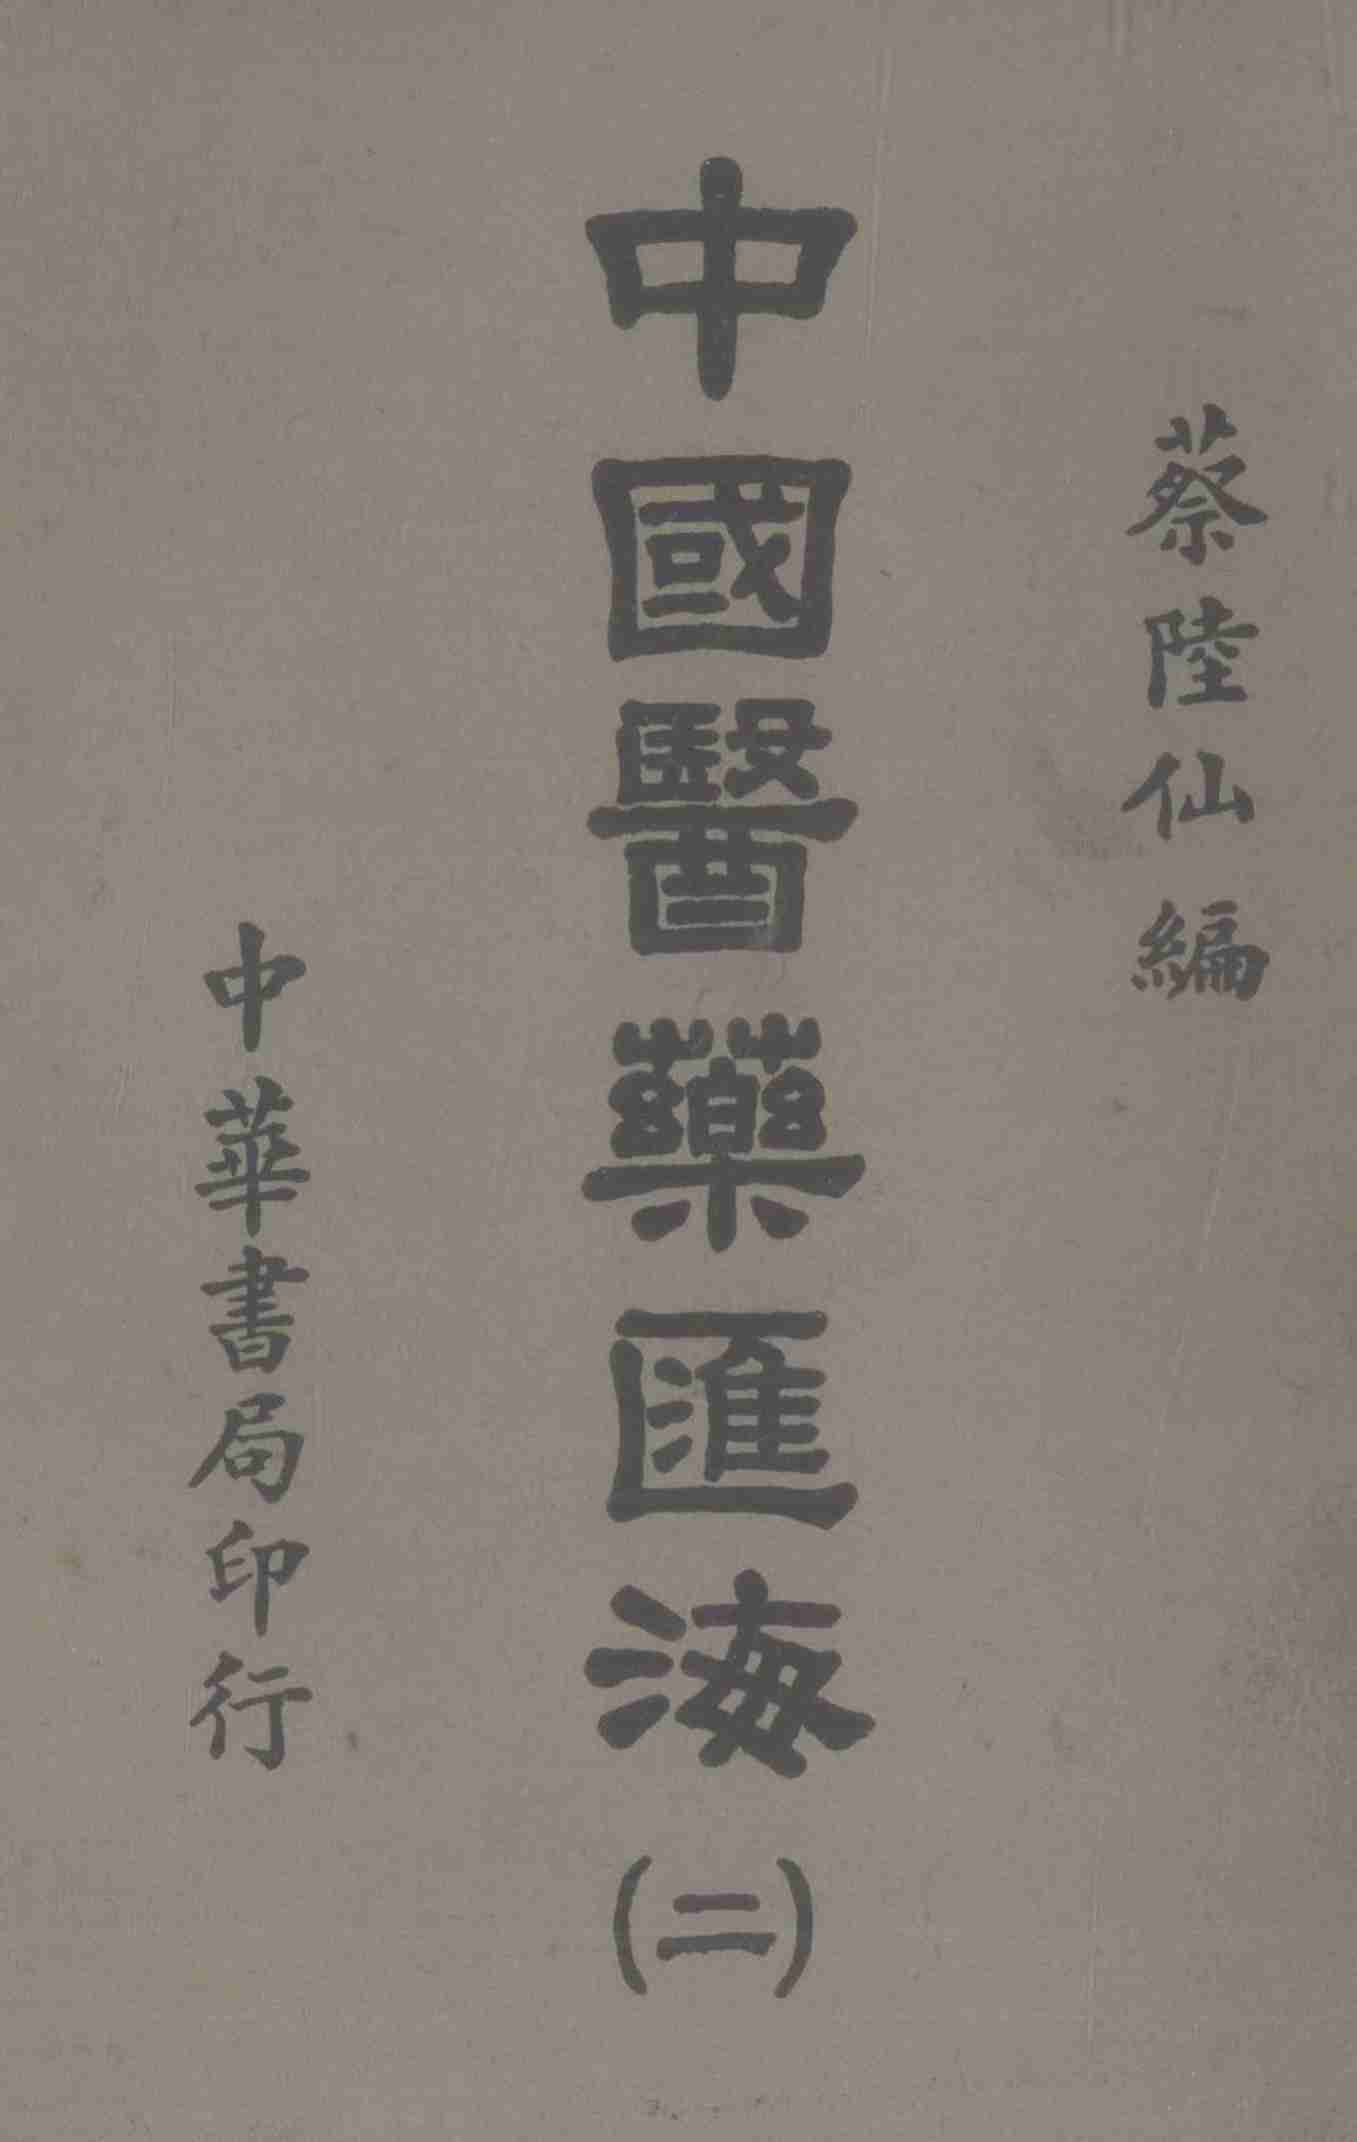 蔡陸仙編
中國醫藥匯海(二)
中華書局印行